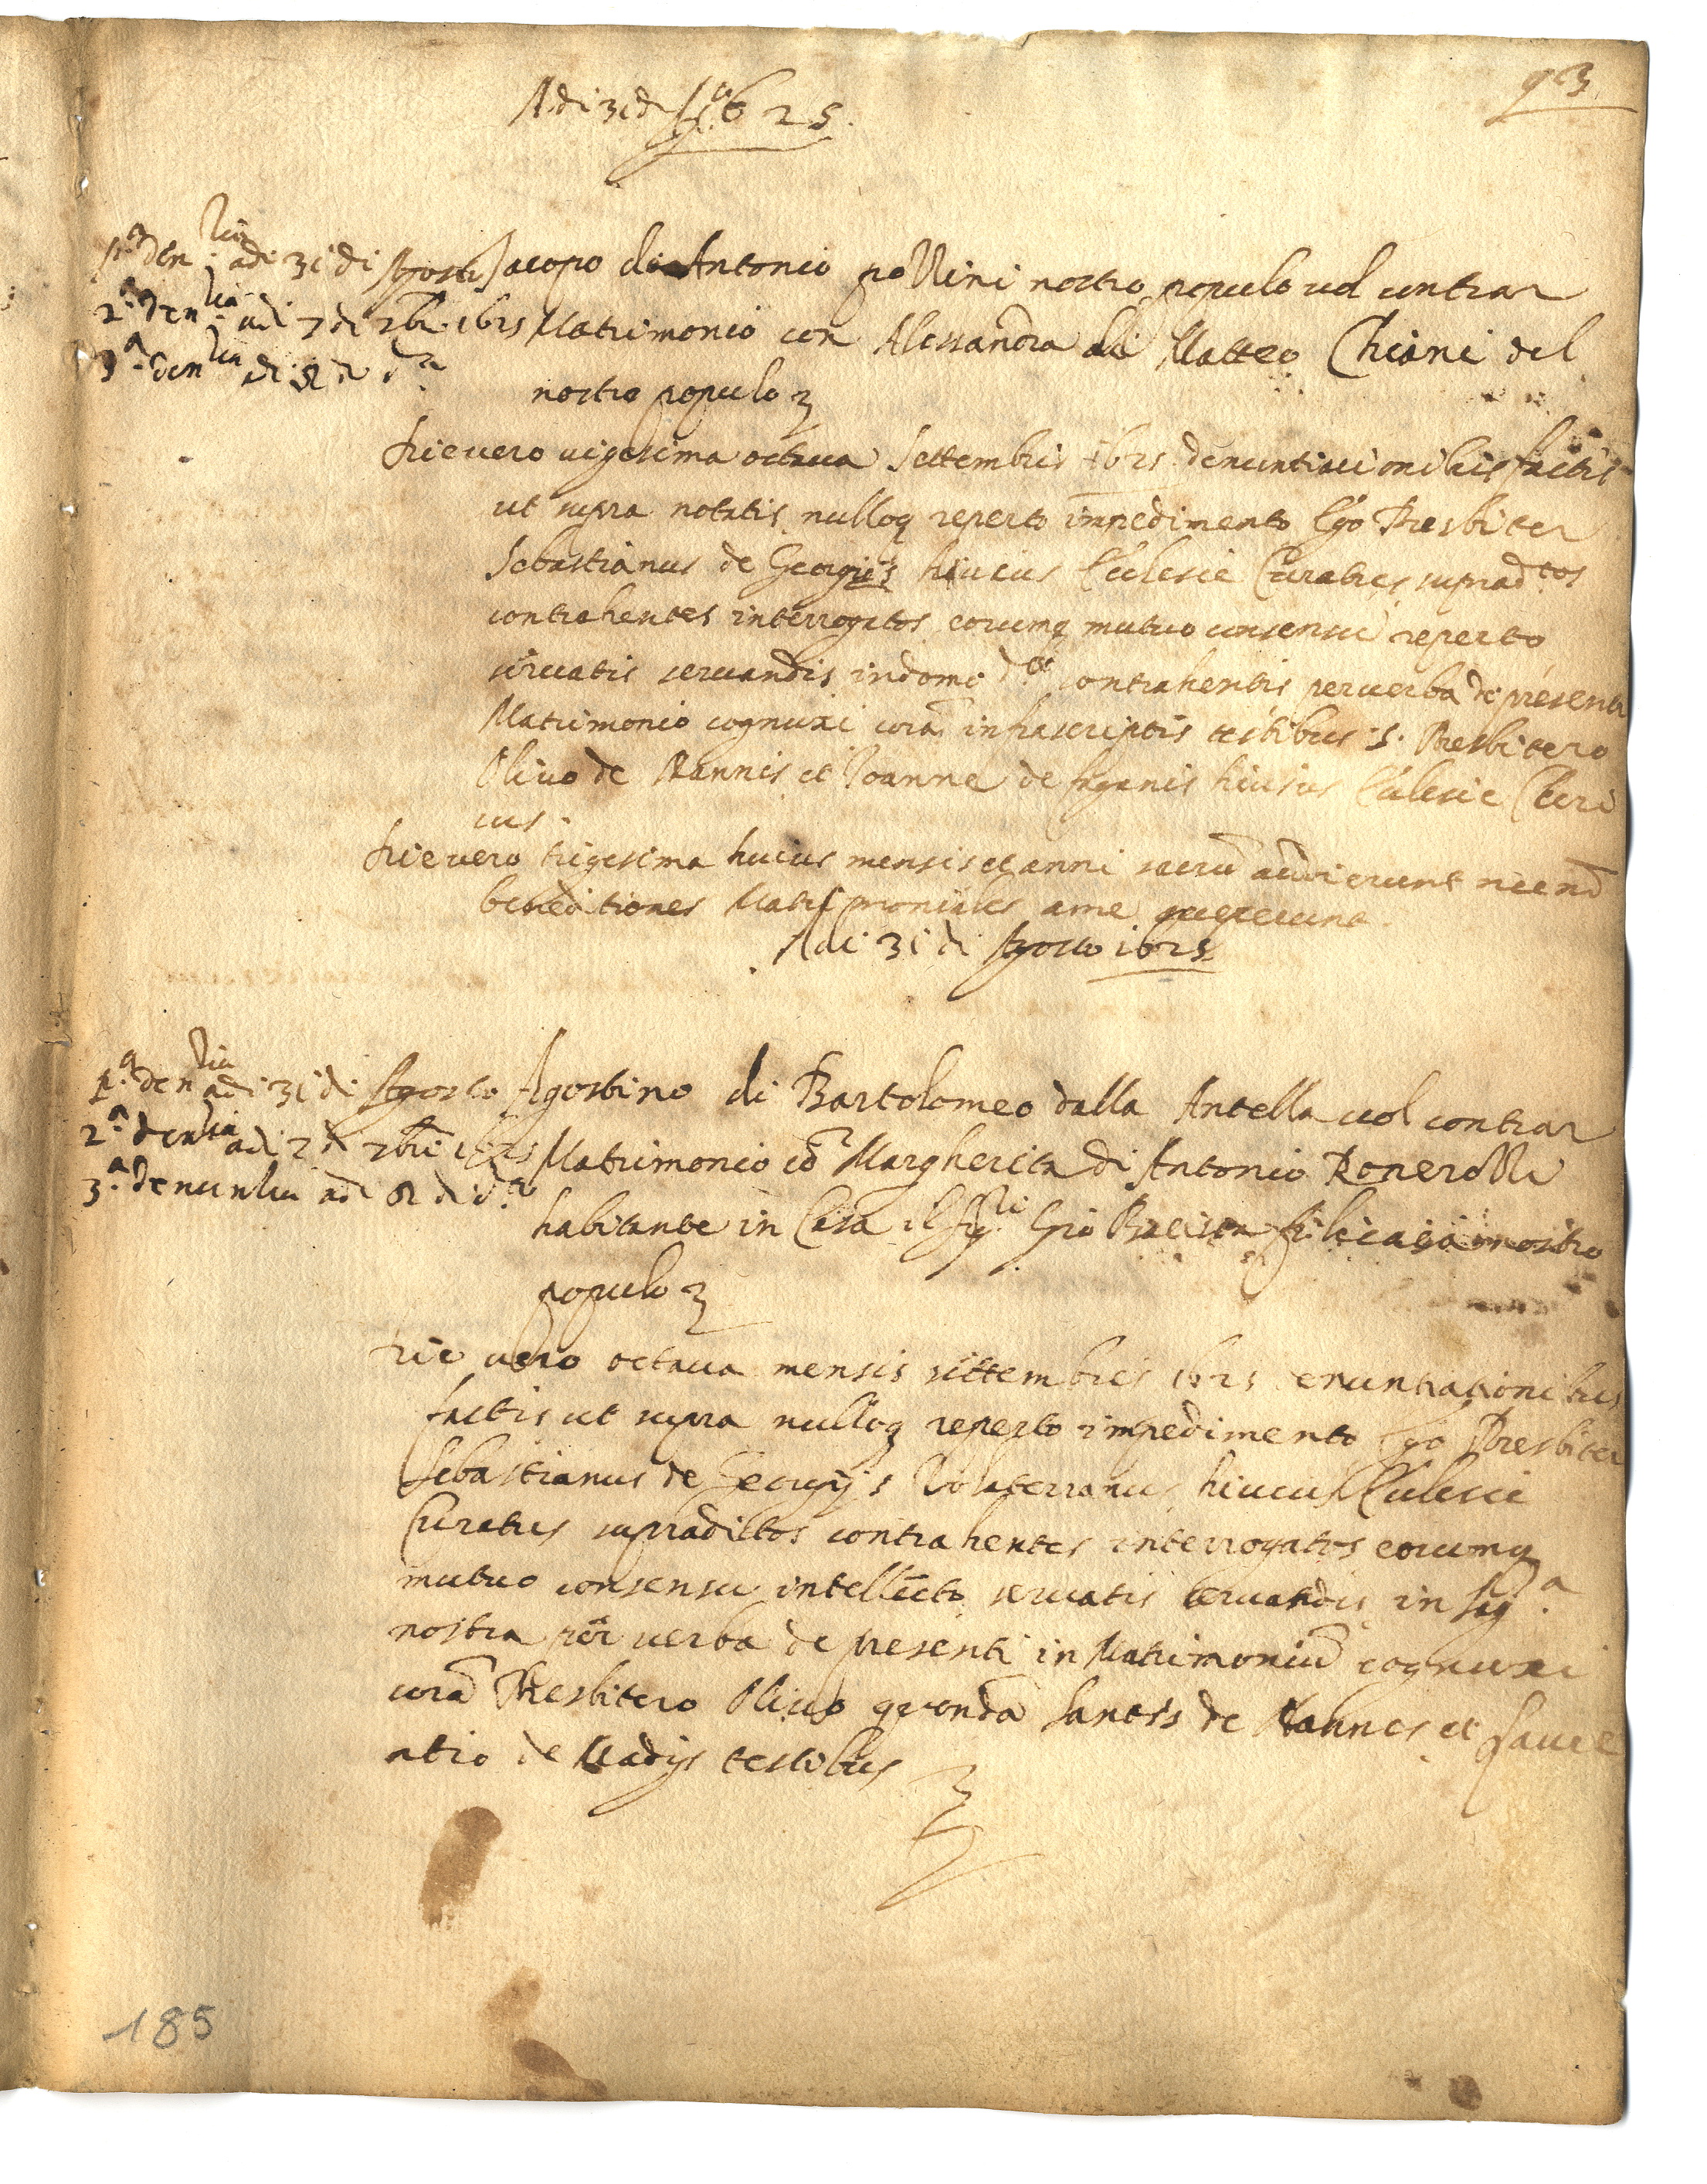 93
Adi 31 di Ago 1625.
p.a denlia adi 31 di Agosto Jacopo di Antonio pollini nostro populo vol contrar
2.a denlia adi 7 di 7bre 1625 Matrimonio con Alessandra di Matteo Chiani del
3.a denlia adi 8 di do
nostro populo
Die vero vigesima octava Settembris 1625 denuntiationibus factis
ut supra notatis nulloq reperto impedimento Ego Presbiter
Sebastianus de Georgiis huius Ecclesie Curatus supradtos
contrahentes interrogatos eorumq mutuo consensu reperto
servatis servandis in domo contrahentis per verba de presenti
Matrimonio cognunxi corã infrascriptis testibus s. Presbitero
Olivo de Nannis et Joanne de huius Ecclesie Cleri
cus.
Die vero trigesima huius mensis et anni sacrũ audierunt
beneditiones Matrimoniales a me
Adi 31 di Agosto 1625
p.a denlia adi 31 di Agosto Agostino di Bartolomeo dalla Antella vol contrar
2.a denlia adi 7 di 7bre 1625 Matrimonio cõ Margherita di Antonio Ronerolli
3.a denuntia adi 8 di do
habitante in Casa il Sig. Gio Batista filicaia nostro
populo
Die vero octava mensis settembris 1625 enuntiationibus
factis ut supra nulloq reperto impedimento Ego Presbiter
Sebastianus de Georgijs Volaterranus huius Ecclesie
Curatus supradictos contrahentes interrogatos eorumq
mutuo consensu intellecto servatis servandis in
nostra per verba de presenti in Matrimoniũ cognunxi
corã Presbitero Olivo quondã Santis de Nannis et
de Madijs testibus
185